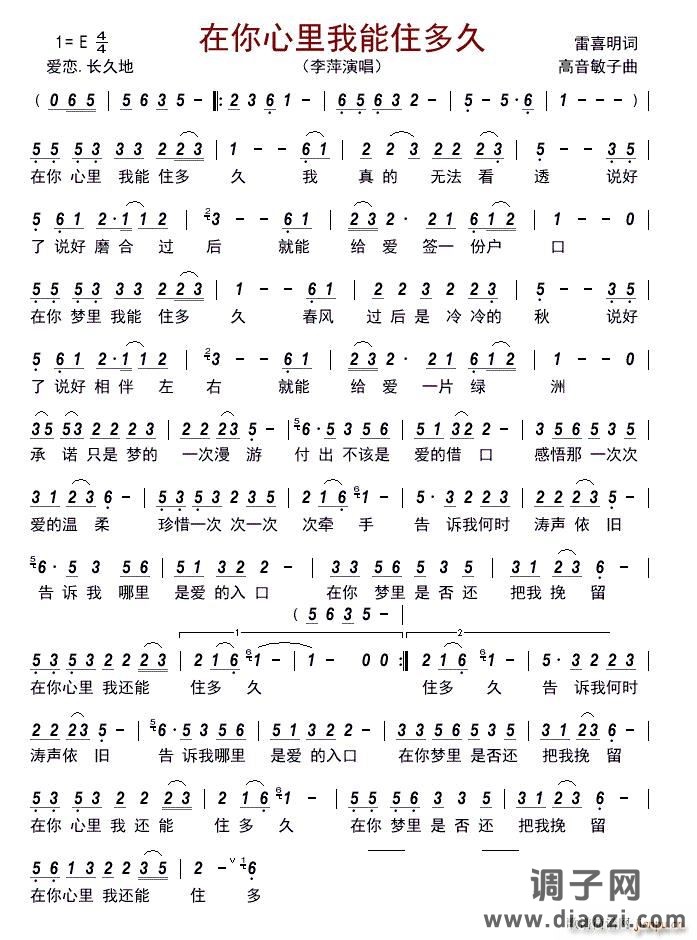 在你心里我能住多久
1= E 4/4 雷喜明词
爱恋.长久地 （李萍演唱） 高音敏子曲
( 0 6 5 | 5 6 3 5 - |: 2 3 6 1 - | 6 5 6 3 2 - | 5 - 5· 6 | 1 - - - ) |
5 5 5 3 3 3 2 2 2 3 | 1 - - 6 1 | 2 2 3 2 2 2 3 | 5 - - 3 5 |
在你 心里 我能 住多 久 我 真的 无法 看 透 说好
5 6 1 2· 1 1 2 | 3 - - 6 1 | 2 3 2 5 6 1 2 | 1 - - 0 |
了 说好 磨合 过 后 就能 给 爱 签一 份户 口
5 5 5 3 3 3 2 2 2 3 | 1 - - 6 1 | 2 2 3 2 2 3 | 5 - - 3 5 |
在你 梦里 我能 住多 久 春风 过 后是 冷 冷的 秋 说好
5 6 1 2· 1 1 2 | 3 - - 6 1 | 2 3 2 5 6 1 2 | 1 - - 0 |
了 说好 相伴 左 右 就能 给 爱 一片 绿 洲
3 5 5 3 2 2 2 3 | 2 2 2 3 5 - | 6· 5 3 5 6 | 5 1 3 2 2 - | 3 5 6 5 3 5 |
承 诺 只是 梦的 一次漫 游 付 出 不该是 爱的借 口 感悟那 一次次
3 1 2 3 2 - | 5 3 5 3 1 2 3 | 2 1 6 1 - | 5· 3 1 2 3 | 2 2 2 3 5 - |
爱的温 柔 珍惜一次 次一次 次牵 手 告 诉我何时 涛声 依 旧
6· 5 3 5 6 | 5 1 3 2 2 - | 3 3 5 6 5 3 5 | 3 3 2 3 2 - |
告 诉 我 哪里 是爱 的 入口 在你 梦里 是否 还 把我 挽 留
( 5 6 3 5 - |
1 2
5 3 5 3 2 2 2 3 | 2 1 6 1 - | 1 - 0 0 :| 2 1 6 1 - | 5· 3 1 2 3 |
在你心里 我还能 住多 久 住多 久 告 诉我何时
2 2 2 3 5 - | 6· 5 3 5 6 | 5 1 3 2 2 - | 5 5 5 6 5 3 5 | 3 3 2 3 2 - |
涛声依 旧 告 诉我哪里 是爱 的入口 在你梦里 是否还 把我 挽 留
5 3 5 3 2 2 2 3 | 2 1 6 1 - | 5 5 5 6 5 3 5 | 3 3 2 3 2 - |
在你 心里 我 还 能 住 多 久 在你 梦里 是 否 还 把我挽 留
5 6 1 3 2 2 3 5 | 2 - 6
在你心里 我还能 住 多
调子网
www.diaozi.com